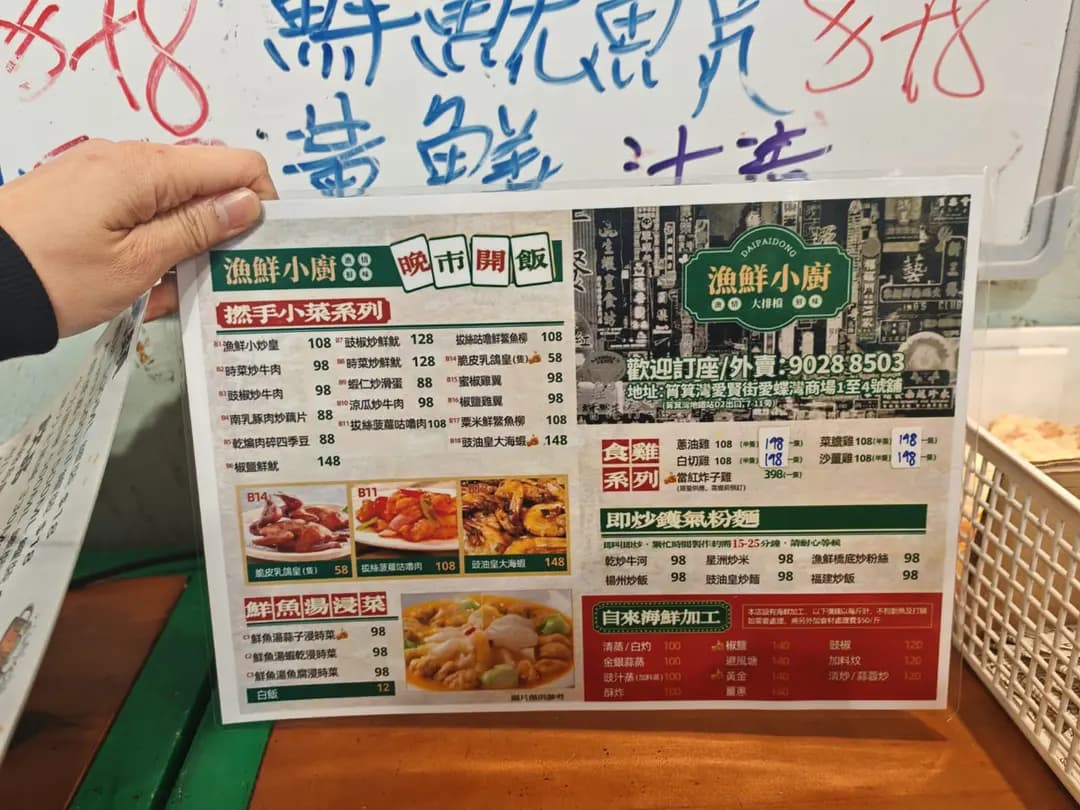 $78 鮮魷魚片 $78
黃鱔
漁鮮小廚 漁情鮮味 晚市開飯
撚手小菜系列
B1 漁鮮小炒皇 108
B2 時菜炒牛肉 98
B3 豉椒炒牛肉 98
B4 南乳豚肉炒藕片 88
B5 乾煸肉碎四季豆 88
B6 椒鹽鮮魷 148
B7 豉椒炒鮮魷 128
B8 時菜炒鮮魷 128
B9 蝦仁炒滑蛋 88
B10 涼瓜炒牛肉 98
B11 拔絲菠蘿咕嚕肉 108
拔絲咕嚕鮮鱉魚柳 108
B14 脆皮乳鴿皇(隻) 58
B15 蜜椒雞翼 98
B16 椒鹽雞翼 98
B17 粟米鮮鱉魚柳 108
B18 豉油皇大海蝦 148
B14 脆皮乳鴿皇(隻) 58
B11 拔絲菠蘿咕嚕肉 108
豉油皇大海蝦 148
鮮魚湯浸菜
C1 鮮魚湯蒜子浸時菜 98
C2 鮮魚湯蝦乾浸時菜 98
C3 鮮魚湯魚腐浸時菜 98
白飯 12
圖片僅供參考
DAIPAIDONG
漁鮮小廚
漁情 大排檔 鮮味
歡迎訂座/外賣:9028 8503
地址:筲箕灣愛賢街愛蝶灣商場1至4號舖
(筲箕灣地鐵站D2出口, 7-11旁)
食雞系列
蔥油雞 108 (半隻) 198 (一隻)
白切雞 108 (半隻) 198 (一隻)
當紅炸子雞 398(一隻)
菜膽雞 108(半隻) 198 (一隻)
沙薑雞 108(半隻) 198 (一隻)
即炒鑊氣粉麵
即叫即炒，繁忙時間製作約需15-25分鐘，請耐心等候
乾炒牛河 98 星洲炒米 98 漁鮮橋底炒粉絲 98
楊州炒飯 98 豉油皇炒麵 98 福建炒飯 98
自來海鮮加工
本店設有海鮮加工，以下價錢以每斤計，不包劏魚及打鱗
如需者處理，將另外加食材處理費$50/斤
清蒸/白灼 100 椒鹽 140 豉椒 120
金銀蒜蒸 100 避風塘 140 加料炆 120
豉汁蒸(加料蒸) 100 黃金 140 清炒/蒜蓉炒 120
酥炸 100 薑蔥 140